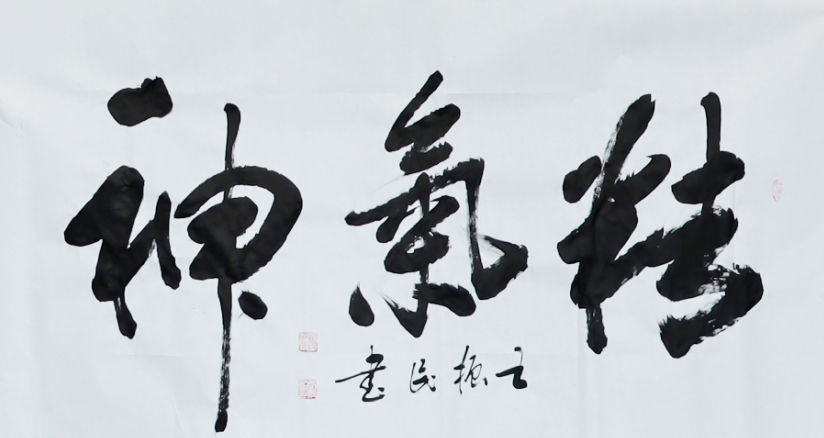 精氣神
王振民書